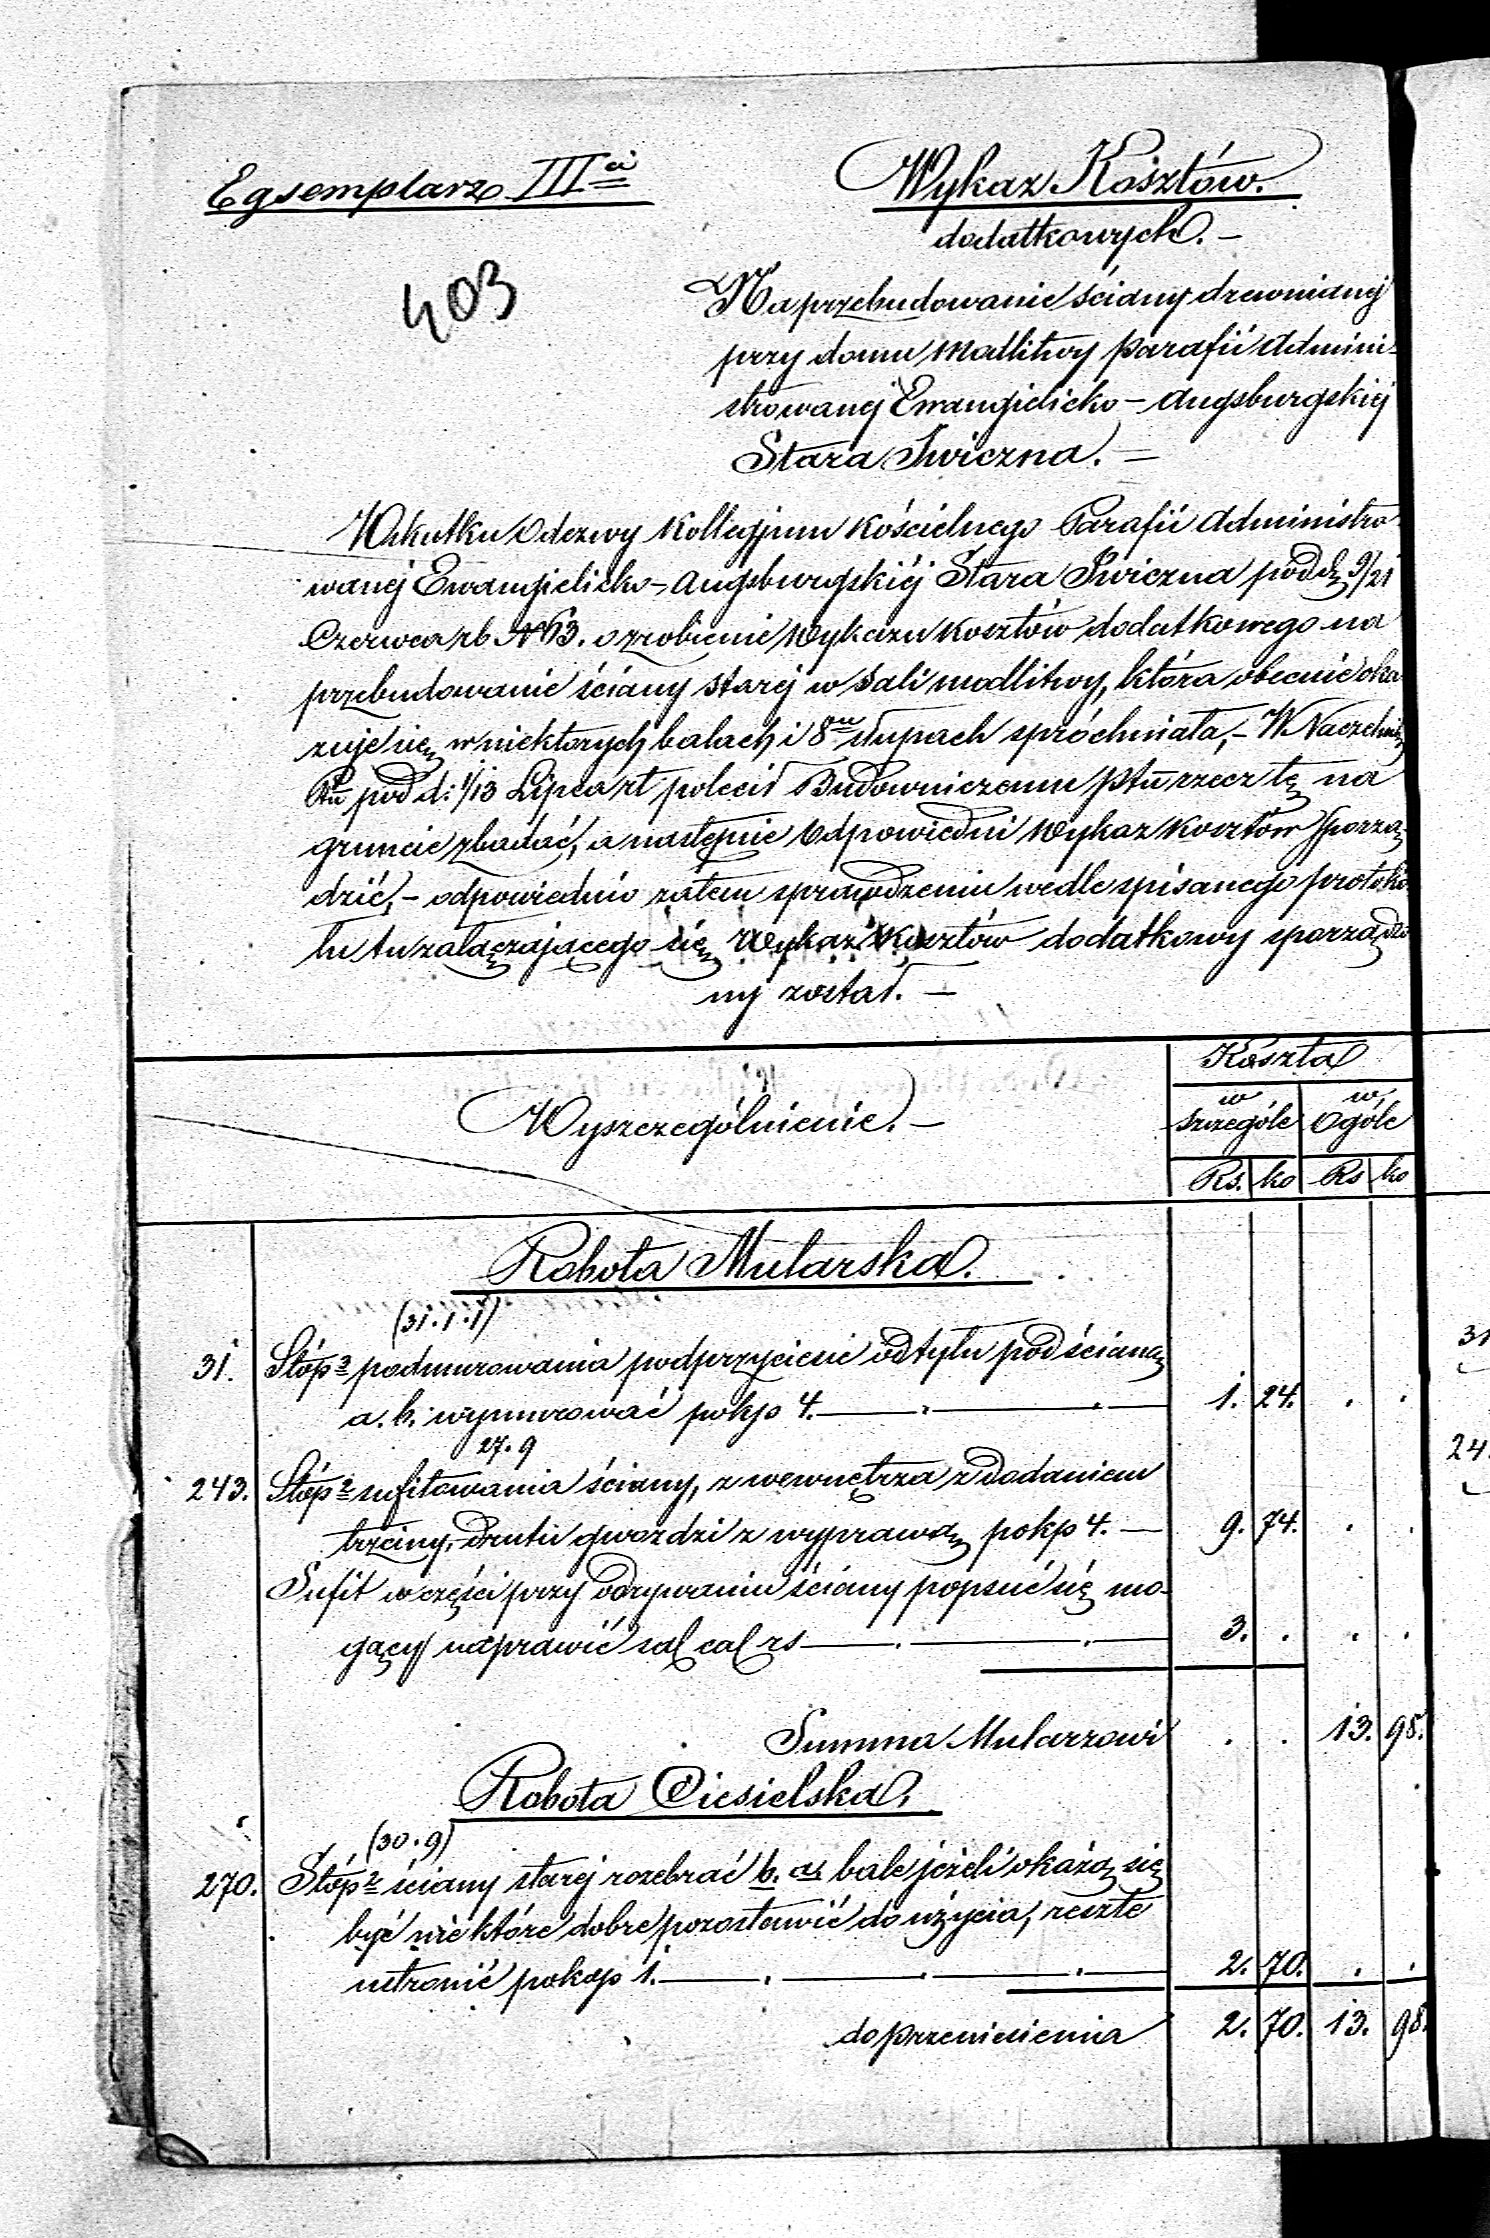 Egsemplarz III<sup>ci</sup>
403
Wykaz Kosztów.
dodatkowych. —
Na przebudowanie ściany drewnianéj
przy domu modlitwy parafii Admini-
strowanéj Ewangielicko - Augsburgskiéj
Stara Iwiczna. —
Wskutku Odezwy Kollegjum Kościelnego Parafii Administro-
wanéj Ewangielicko - Augsburgskiéj Stara Iwiczna pod d. 9/21
Czerwca rb № 63. o zrobienie Wykazu Kosztów dodatkowego na
przebudowanie ściany staréj w sali modlitwy, która obecnie oka-
zuje się w niektorych balach i 8<sup>iu</sup> słupach spróchniała, - W. Naczelnik
Ptu pod d: 1/13 Lipca rb polecił Budowniczemu Ptu rzecz tę na
gruncie zbadać, a następnie odpowiedni wykaz kosztów sporzą-
dzić, - odpowiednio zatem sprawdzeniu wedle spisanego protokó-
łu tu załączającego się, Wykaz Kosztów dodatkowy sporządzo
ny został. —
Koszta
Wyszczególnienie. —
w szczególe
w Ogóle
Rs. ko Rs ko
Robota Mularska.
(31.1.1)
31. Stóp 3 podmurowania podprzyciesi od tyłu pod ścianą
a. b. wymurować po kp 4. — 1. 24. . .
27.9
243. Stóp 2 sufitowania ściany, z wewnętrza z dodaniem
trzciny, drutu gwozdzi z wyprawą po kp 4. — 9. 74. . .
Sufit w części przy odrywaniu ściany popsuć się mo-
gący naprawić rs — 3. . . .
Summa Mularzowi . . 13. 98.
Robota Ciesielska.
(30.9)
270. Stóp 2 ściany staréj rozebrać b. a. bale jeżeli okażą się
być niektóre dobre pozostawić do użycia, resztę
utronić po kop 1. — 2. 70. . .
do przeniesienia 2. 70. 13. 98.
31
24.